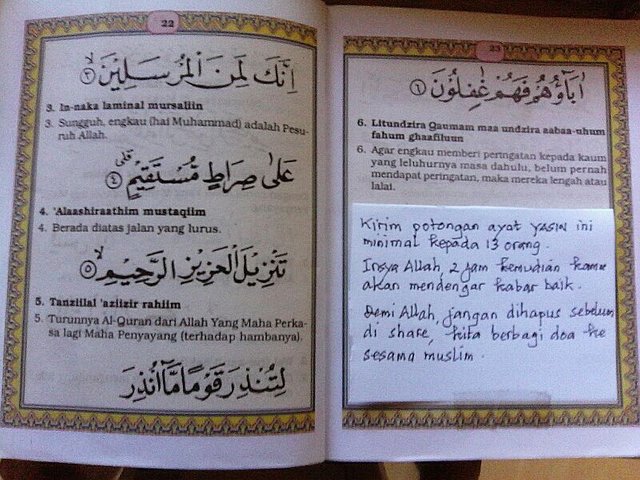 22
اِنَّكَ لَمِنَ الْمُرْسَلِيْنَۙ ﴿٣﴾
3. In-naka laminal mursaliin
3. Sungguh, engkau (hai Muhammad) adalah Pesu-
ruh Allah.
عَلٰى صِرَاطٍ مُّسْتَقِيْمٍۗ ﴿٤﴾
4. 'Alaashiraathim mustaqiim
4. Berada diatas jalan yang lurus.
تَنْزِيْلَ الْعَزِيْزِ الرَّحِيْمِۙ ﴿٥﴾
5. Tanziilal 'aziizir rahiim
5. Turunnya Al-Quran dari Allah Yang Maha Perka-
sa lagi Maha Penyayang (terhadap hambanya).
لِتُنْذِرَ قَوْمًا مَّآ اُنْذِرَ
23
اٰبَاؤُهُمْ فَهُمْ غٰفِلُوْنَ ﴿٦﴾
6. Litundzira Qaumam maa undzira aabaa-uhum
fahum ghaafiluun
6. Agar engkau memberi peringatan kepada kaum
yang leluhurnya masa dahulu, belum pernah
mendapat peringatan, maka mereka lengah atau
lalai.
Kirim potongan ayat YASIN ini
minimal kepada 13 orang.
Insya Allah, 2 jam kemudian kamu
akan mendengar kabar baik.
Demi Allah, jangan dihapus sebelum
di share, kita berbagi doa ke
sesama muslim.